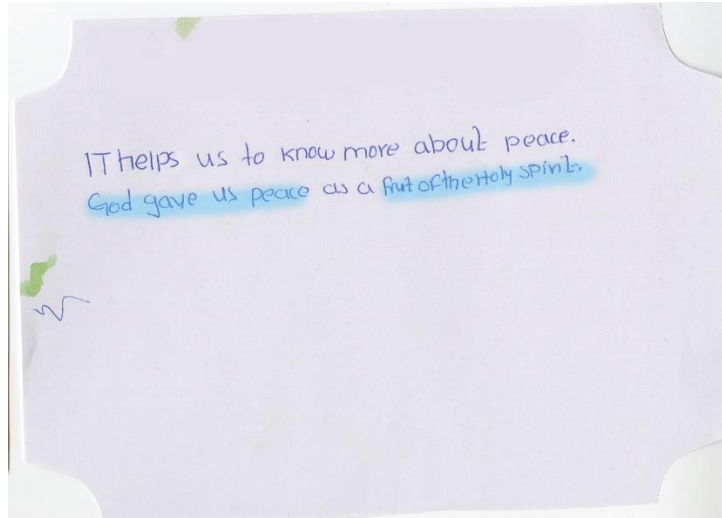 IT helps us to know more about peace.
God gave us peace as a fruit of the Holy spirit.